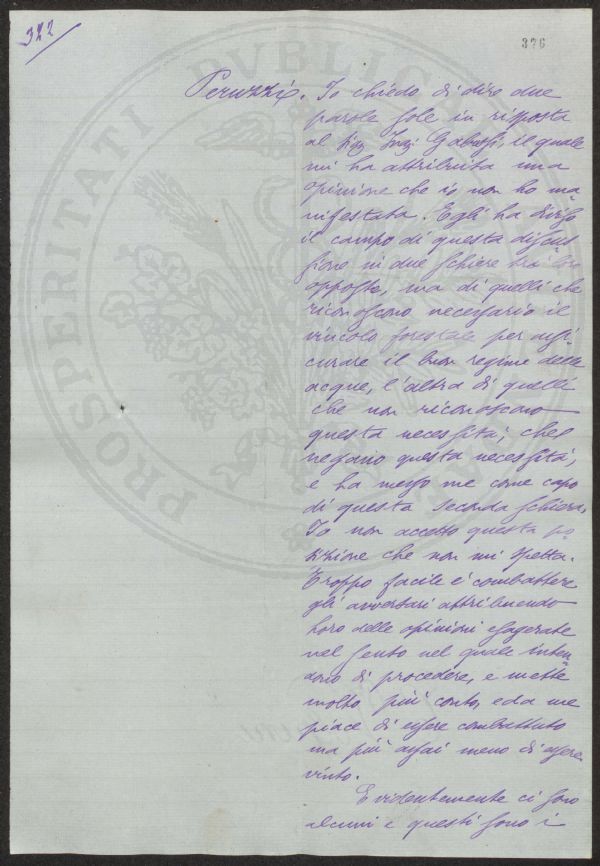 322
376
PROSPERITATI PVBLICAE
Peruzzi. Io chiedo di dire due
parole sole in risposta
al Sig. Ing. Gabussi, il quale
mi ha attribuita una
opinione che io non ho ma
nifestata. Egli ha diviso
il campo di questa discus
sione in due schiere tra loro
opposte, una di quelli che
riconoscono necessario il
vincolo forestale per assi
curare il buon regime delle
acque, l'altra di quelli
che non riconoscono
questa necessità; che
negano questa necessità,
e ha messo me come capo
di questa seconda schiera.
Io non accetto questa po
sizione che non mi spetta.
Troppo facile è combattere
gli avversari attribuendo
loro delle opinioni esagerate
nel senso nel quale inten
dono di procedere, e mette
molto più conto, ed a me
piace di essere combattuto
ma più assai meno di essere
vinto.
Evidentemente ci sono
alcuni e questi sono i